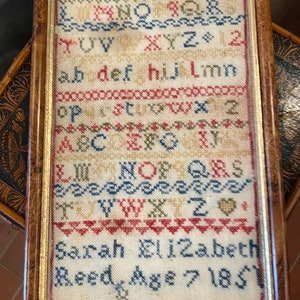 L M N O P Q R
T U V W X Y Z 1 2
a b c d e f g h i j k l m n
o p q r s t u v w x y z
A B C D E F G H I J
L M N O P Q R S
T U V W X Y Z
Sarah Elizabeth
Reed Age 7 1851